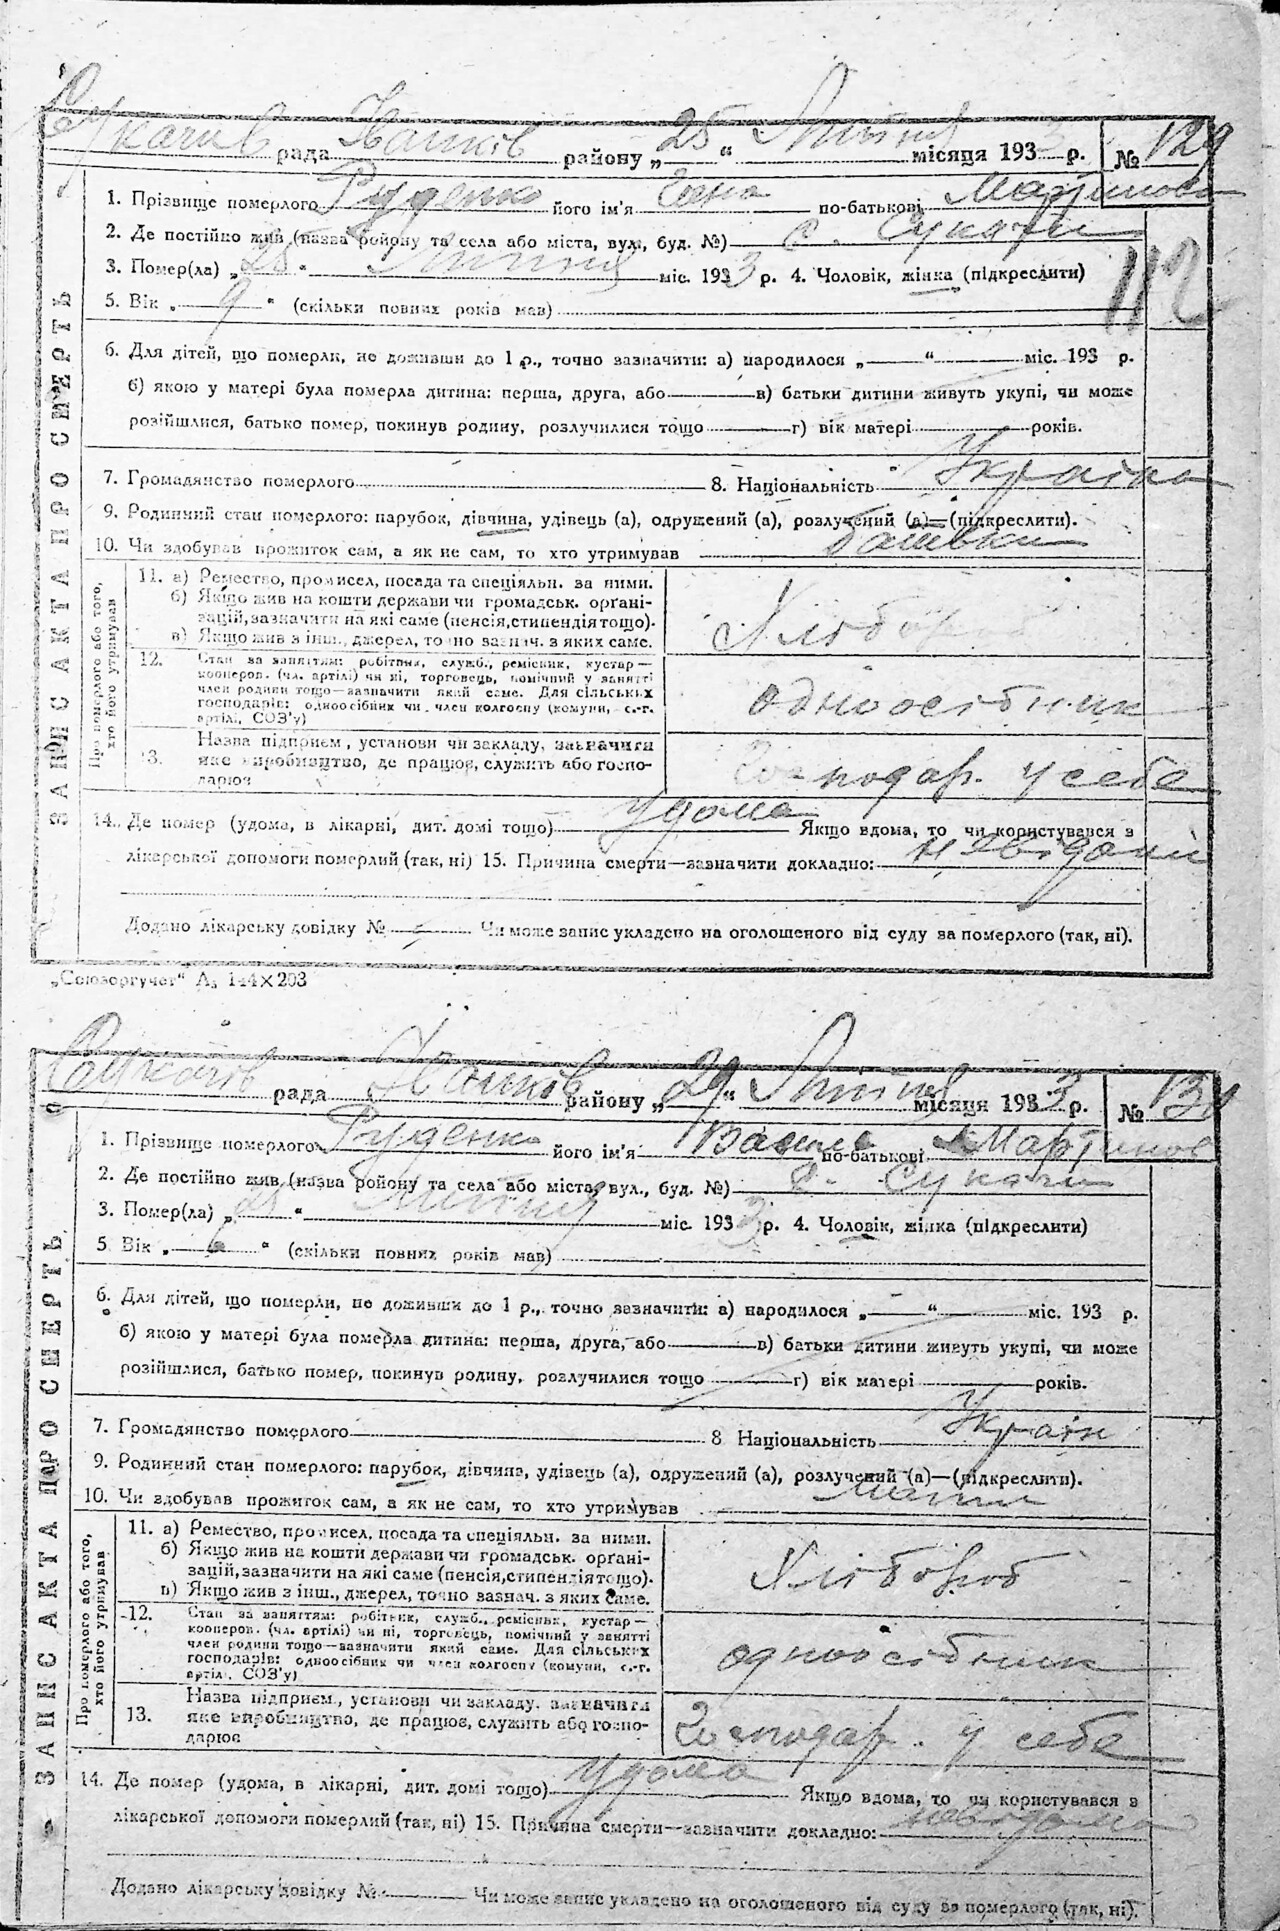 Сукачів рада Іванків району „25“ Липня місяця 1933 р. № 129
1. Прізвище померлого Руденко його ім'я по-батькові Мартинова
2. Де постійно жив (назва району та села або міста, вул., буд. №) с. Сукачи
3. Помер(ла) „25“ Липня міс. 1933 р. 4. Чоловік, жінка (підкреслити)
112
5. Вік „9“ (скільки повних років мав)
6. Для дітей, що померли, не доживши до 1 р., точно зазначити: а) народилося „ “ міс. 193 р.
б) якою у матері була померла дитина: перша, друга, або в) батьки дитини живуть укупі, чи може
розійшлися, батько помер, покинув родину, розлучилися тощо г) вік матері років.
7. Громадянство померлого 8. Національність Україна
9. Родинний стан померлого: парубок, дівчина, удівець (а), одружений (а), розлучений (а)—(підкреслити).
10. Чи здобував прожиток сам, а як не сам, то хто утримував батьки
ЗАПИС АКТА ПРО СМЕРТЬ
Про померлого або того, хто його утримував
11. а) Ремество, промисел, посада та спеціяльн. за ними.
б) Якщо жив на кошти держави чи громадськ. орґані-
зацій, зазначити на які саме (пенсія, стипендія тощо).
в) Якщо жив з інш., джерел, точно зазнач. з яких саме.
Хлібороб
12. Стан за заняттям: робітник, служб., ремісник, кустар—
кооперов. (чл. артілі) чи ні, торговець, помічний у занятті
член родини тощо—зазначити який саме. Для сільських
господарів: одноосібник чи член колгоспу (комуни, с.-г.
артілі, СОЗ'у)
одноосібник
13. Назва підприєм., установи чи закладу, зазначити
яке виробництво, де працює, служить або госпо-
дарює
Господар. у себе
14. Де помер (удома, в лікарні, дит. домі тощо) удома Якщо вдома, то чи користувався з
лікарської допомоги померлий (так, ні) 15. Причина смерти—зазначити докладно:
Додано лікарську довідку № Чи може запис укладено на оголошеного від суду за померлого (так, ні).
„Союзоргучет“ А₅ 144×203
Сукачів рада Іванків району „29“ Липня місяця 1933 р. №
1. Прізвище померлого Руденко його ім'я по-батькові Мартинов
2. Де постійно жив (назва району та села або міста, вул., буд. №) с. Сукачи
3. Помер(ла) „ “ Липня міс. 1933 р. 4. Чоловік, жінка (підкреслити)
5. Вік „ “ (скільки повних років мав)
6. Для дітей, що померли, не доживши до 1 р., точно зазначити: а) народилося „ “ міс. 193 р.
б) якою у матері була померла дитина: перша, друга, або в) батьки дитини живуть укупі, чи може
розійшлися, батько помер, покинув родину, розлучилися тощо г) вік матері років.
7. Громадянство померлого 8 Національність Україн
9. Родинний стан померлого: парубок, дівчина, удівець (а), одружений (а), розлучений (а)—(підкреслити).
10. Чи здобував прожиток сам, а як не сам, то хто утримував мати
ЗАПИС АКТА ПРО СМЕРТЬ
Про померлого або того, хто його утримував
11. а) Ремество, промисел, посада та спеціяльн. за ними.
б) Якщо жив на кошти держави чи громадськ. орґані-
зацій, зазначити на які саме (пенсія, стипендія тощо).
в) Якщо жив з інш., джерел, точно зазнач. з яких саме.
Хлібороб
12. Стан за заняттям: робітник, служб., ремісник, кустар—
кооперов. (чл. артілі) чи ні, торговець, помічний у занятті
член родини тощо—зазначити який саме. Для сільських
господарів: одноосібник чи член колгоспу (комуни, с.-г.
артілі, СОЗ'у)
одноосібник
13. Назва підприєм., установи чи закладу, зазначити
яке виробництво, де працює, служить або госпо-
дарює
Господар. у себе
14. Де помер (удома, в лікарні, дит. домі тощо) удома Якщо вдома, то чи користувався з
лікарської допомоги померлий (так, ні) 15. Причина смерти—зазначити докладно: невідома
Додано лікарську довідку № Чи може запис укладено на оголошеного від суду за померлого (так, ні).